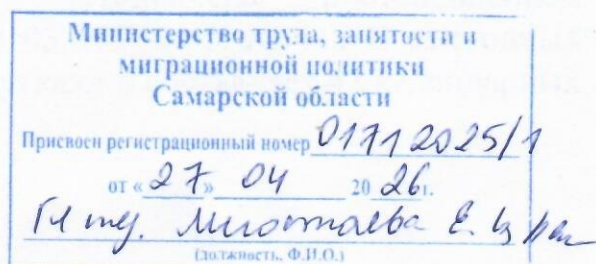 Министерство труда, занятости и
миграционной политики
Самарской области
Присвоен регистрационный номер 01712025/1
от « 27 » 04 20 26г.
Е.
(должность, Ф.И.О.)